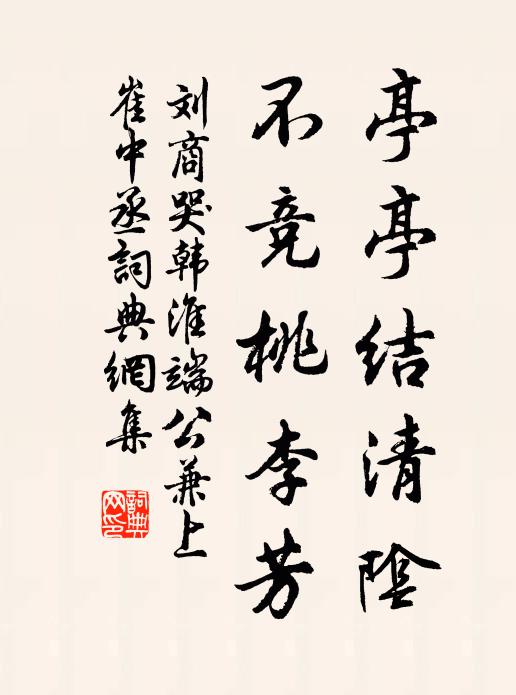 亭亭结清陰
不竞桃李芳
刘商哭韩淮端公兼上
崔中丞詞典網集
詞典网印